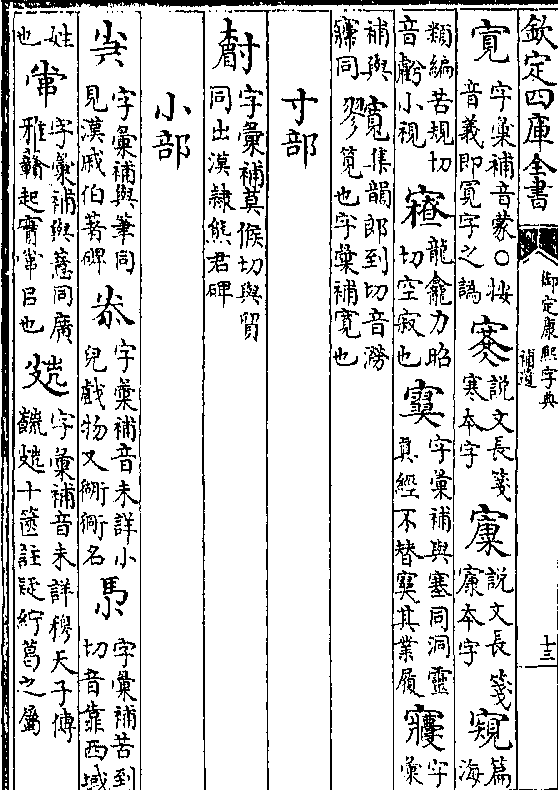 欽定四庫全書
御定康熙字典
補遺
十三
字彙補音蒙○按
音義即冥字之譌
説文長箋
寒本字
説文長箋
本字
篇海
類編苦規切
音虧小視
龍龕力昭
切空寂也
字彙補與塞同洞靈
真經不替其業履
字彙
補與
同
集韻郎到切音澇
寬也字彙補寬也
寸部
字彙補莫候切與貿
同出漢隸熊君碑
小部
字彙補與筆同
見漢戚伯著碑
字彙補音未詳小
兒戲物又衚衕名
字彙補苦到
切音靠西域
姓也
字彙補與同廣
雅起也
字彙補音未詳穆天子傳
十篋註疑紵葛之屬